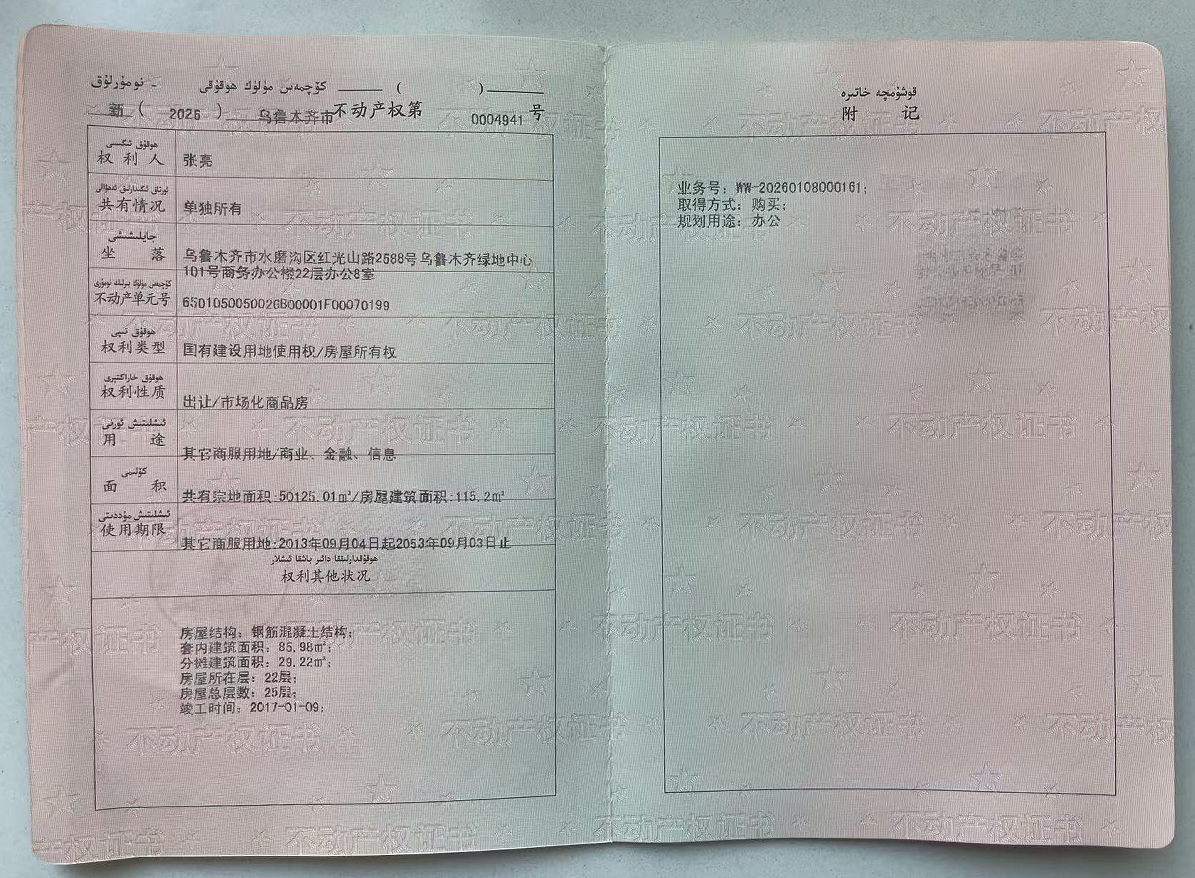 كۆچمەس مۈلۈك ھوقۇقى ____ ( )____ - نومۇرلۇق
新 ( 2026 ) 乌鲁木齐市 不动产权第 0004941 号
ھوقۇق ئىگىسى
权利人 张亮
ئورتاق ئىگىدارلىق ئەھۋالى
共有情况 单独所有
جايلىشىشى
坐落 乌鲁木齐市水磨沟区红光山路2588号乌鲁木齐绿地中心
101号商务办公楼22层办公8室
كۆچمەس مۈلۈك بىرلىك نومۇرى
不动产单元号 650105005002GB00001F00070199
ھوقۇق تىپى
权利类型 国有建设用地使用权/房屋所有权
ھوقۇق خاراكتېرى
权利性质 出让/市场化商品房
ئىشلىتىش ئورنى
用途 其它商服用地/商业、金融、信息
كۆلىمى
面积 共有宗地面积:50125.01㎡/房屋建筑面积:115.2㎡
ئىشلىتىش مۇددىتى
使用期限 其它商服用地:2013年09月04日起2053年09月03日止
ھوقۇقدارلىققا دائىر باشقا ئىشلار
权利其他状况
房屋结构: 钢筋混凝土结构;
套内建筑面积: 85.98㎡;
分摊建筑面积: 29.22㎡;
房屋所在层: 22层;
房屋总层数: 25层;
竣工时间: 2017-01-09;
قوشۇمچە خاتىرە
附记
业务号: WW-20260108000161;
取得方式: 购买;
规划用途: 办公
不动产权证书